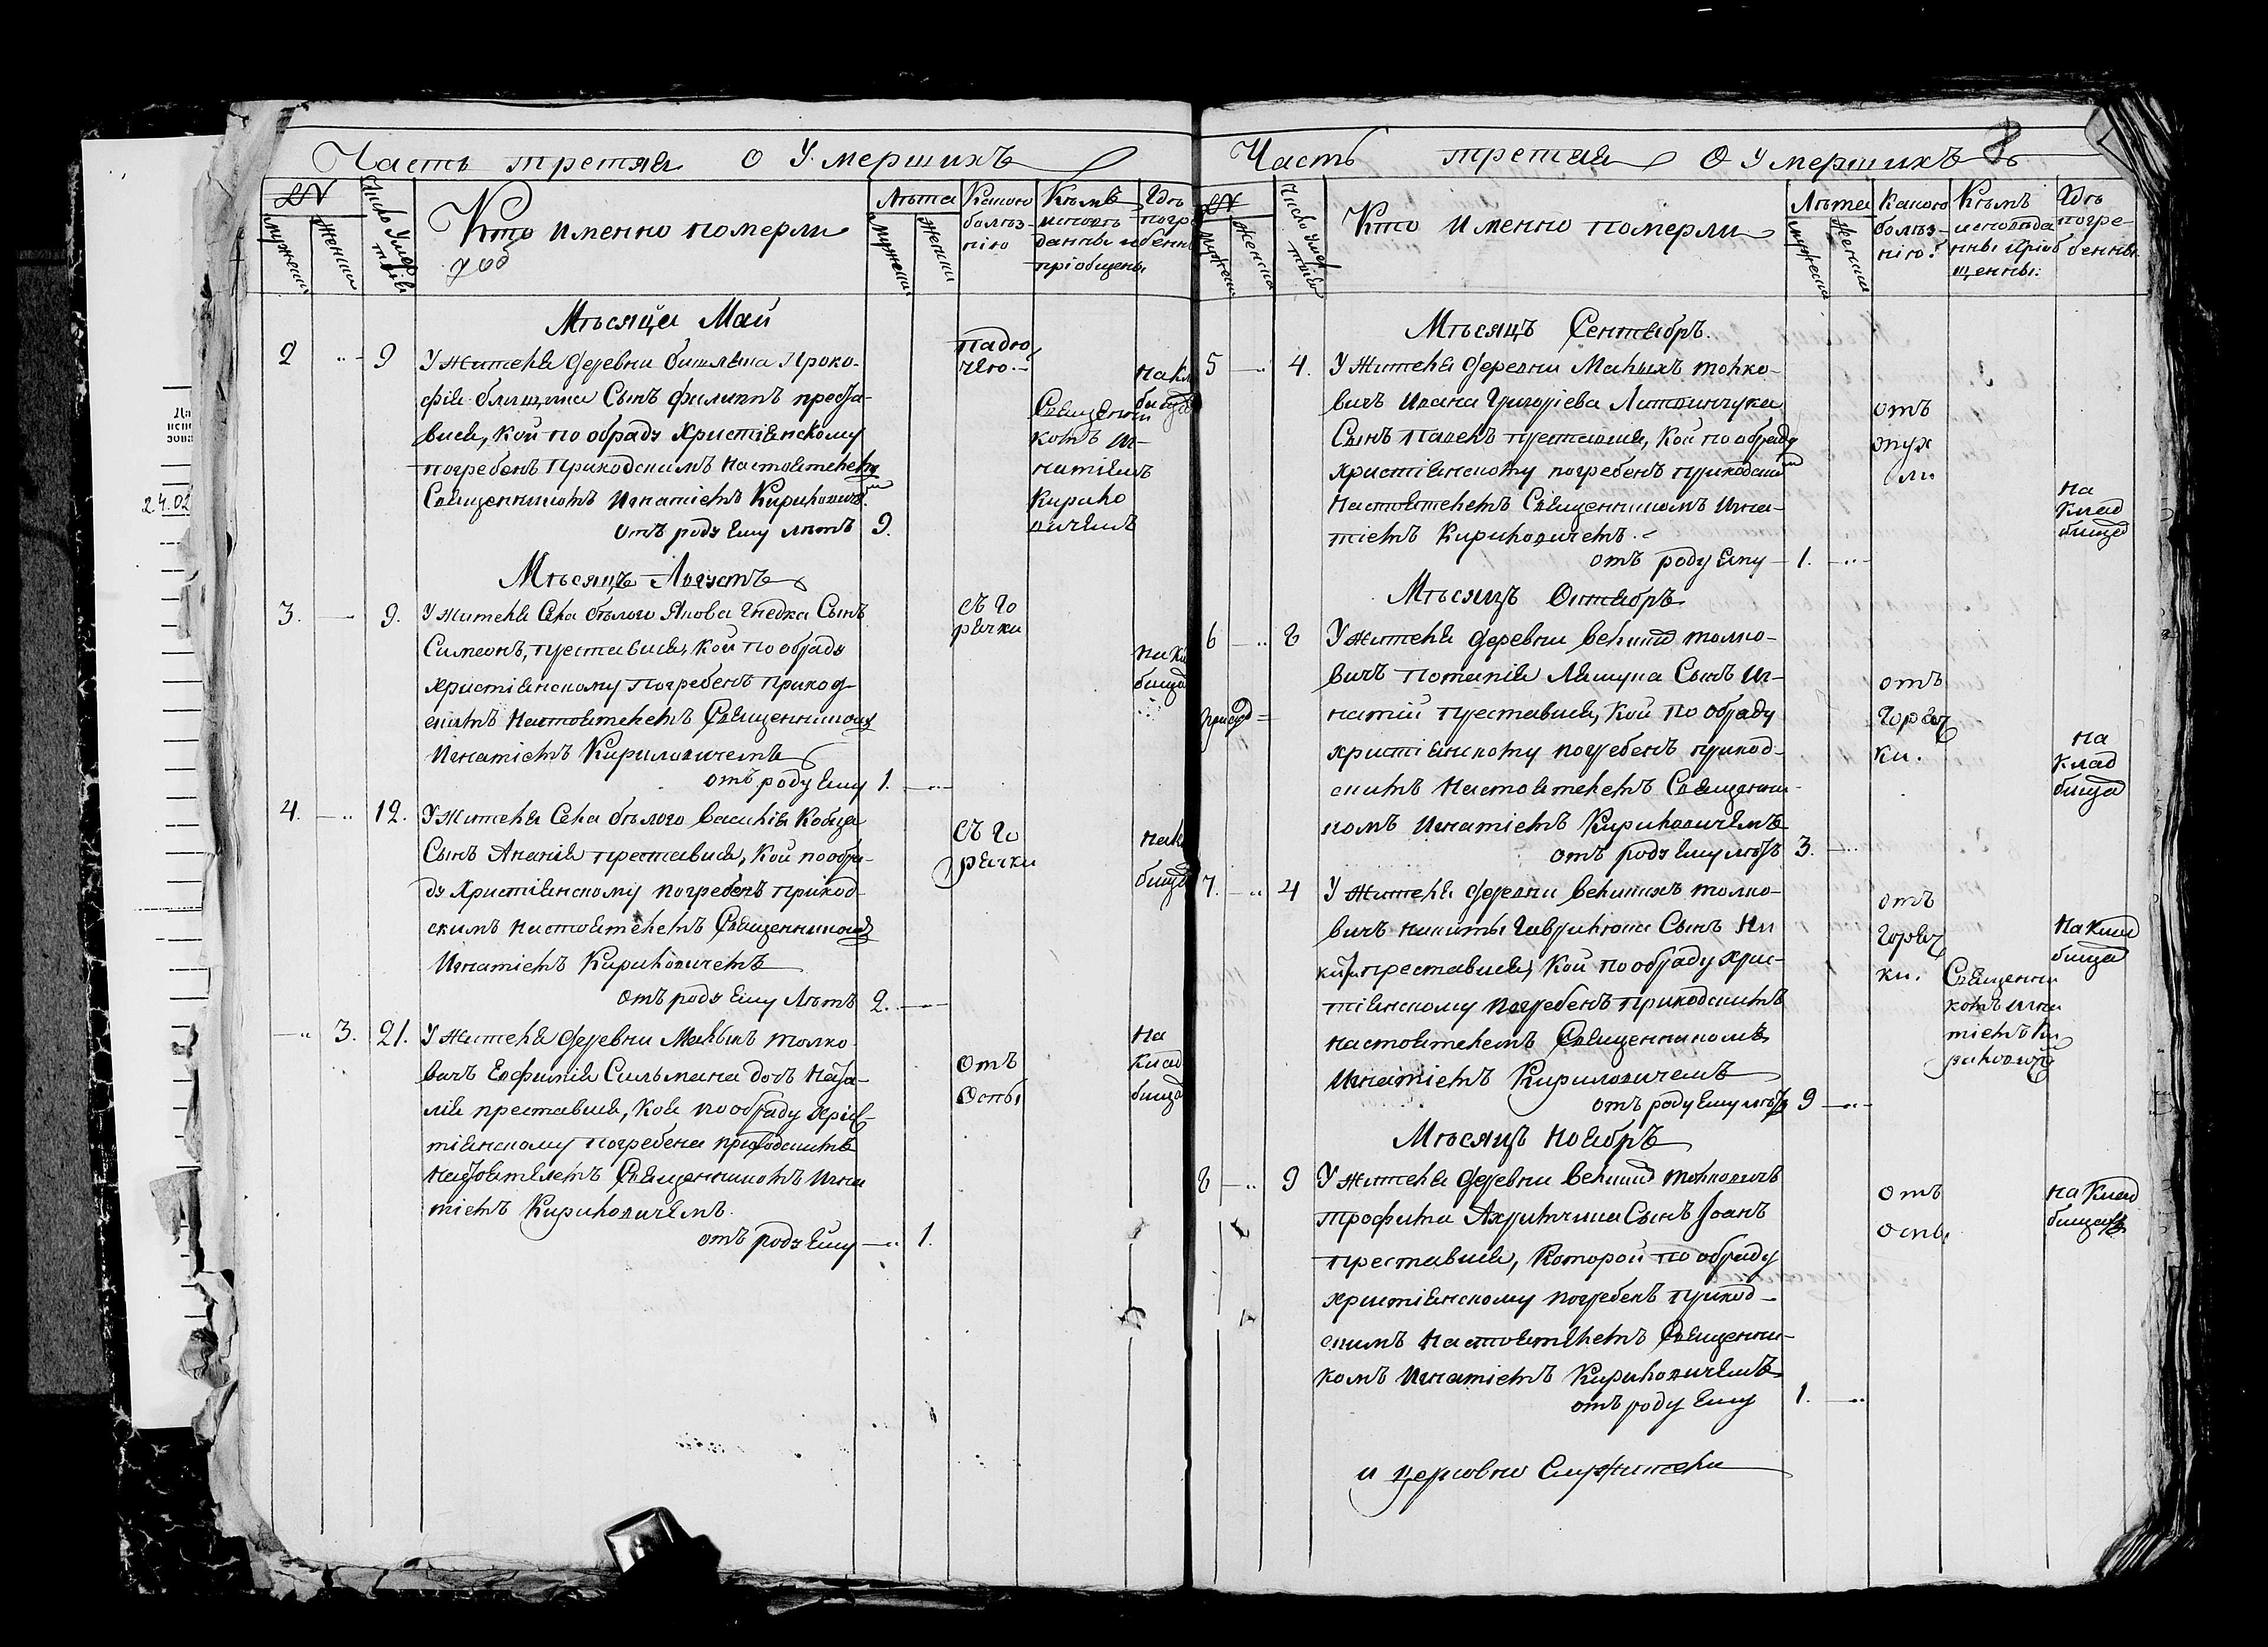 Часть третяя о Умершихъ
№
мужеска
женска
Число Умер
твія
Кто именно померли
Лѣта
мужеска
женска
Какою
болѣз-
нію
Кѣмъ
исповѣ
данны и
пріобщены
Гдѣ
погре
бенны
Мѣсяца Май
2 9 У жителя деревни Проко-
фія Сынъ Филиппъ преста-
вися, кой по обряду Христіянскому
погребенъ приходскимъ настоятелемъ
Священникомъ Игнатіемъ Кириловичемъ
отъ роду ему лѣтъ 9.
падю
чею.
Священни
комъ Иг-
натіемъ
Кирило
вичемъ
на кл
бищѣ
Мѣсяцъ Августъ
3. 9. У жителя Села бѣлого Якова Гнедка Сынъ
Симеонъ, преставися, кой по обряду
христіянскому погребенъ приход-
скимъ настоятелемъ Священникомъ
Игнатіемъ Кириловичемъ
отъ роду ему 1.
съ го
рячки
на кл
бищѣ
4. 12. У жителя Села бѣлого Василія Кобца
Сынъ Ананія преставися, кой по обря-
ду Христіянскому погребенъ приход-
скимъ настоятелемъ Священникомъ
Игнатіемъ Кириловичемъ
отъ роду ему Лѣтъ 2.
съ го
рячки
на кл
бищѣ
3. 21. У жителя деревни Малыхъ толко-
вичъ Евфимія Сильмана дочъ Ната-
лія преставися, коя по обряду хрис-
тіянскому погребена приходскимъ
настоятелемъ Священникомъ Игна
тіемъ Кириловичемъ.
отъ роду ему 1.
отъ
Оспы
на
клад
бищѣ
24.02
Часть третяя О Умершихъ
8
№
мужеска
женска
Число Умер
твія
Кто именно померли
Лѣта
мужеска
женска
Какою
болѣз-
нію?
Кѣмъ
исповѣда
нны и пріоб
щенны:
Гдѣ
погре-
бенны.
Мѣсяцъ Сентябръ.
5 4. У жителя деревни Малыхъ толко-
вичъ Ивана Григоріева Литвинчука
Сынъ Павелъ преставися, кой по обряду
христіянскому погребенъ приходским
настоятелемъ Священникомъ Игна-
тіемъ Кириловичемъ.
отъ роду ему 1.
отъ
опух
ли
на
клад
бищѣ
Мѣсяцъ Октябръ
6 8 У жителя деревни великих толко-
вичъ Потапія Ляшука Сынъ Иг-
натій преставися, кой по обряду
христіянскому погребенъ приход-
скимъ настоятелемъ Священни-
комъ Игнатіемъ Кириловичемъ
отъ роду ему лѣтъ 3.
отъ
горяч
ки.
на
клад
бищѣ
7. 4 У жителя деревни великихъ толко-
вичъ Никиты Гаврилюка Сынъ Ни
преставися, кой по обряду хрис-
тіянскому погребенъ приходскимъ
настоятелемъ Священникомъ
Игнатіемъ Кириловичемъ
отъ роду ему лѣтъ 9
отъ
горяч
ки.
Священни
комъ Игна
тіемъ Ки
риловичѣ
на клад
бищѣ
Мѣсяцъ Ноябръ
8 9 У жителя деревни великих толковичъ
Трофима Сынъ Іоанъ
преставися, которой по обряду
христіянскому погребенъ приход-
скимъ настоятелемъ Священни-
комъ Игнатіемъ Кириловичемъ
отъ роду ему 1.
отъ
оспы
на клад
бищѣ
и церковно Служители